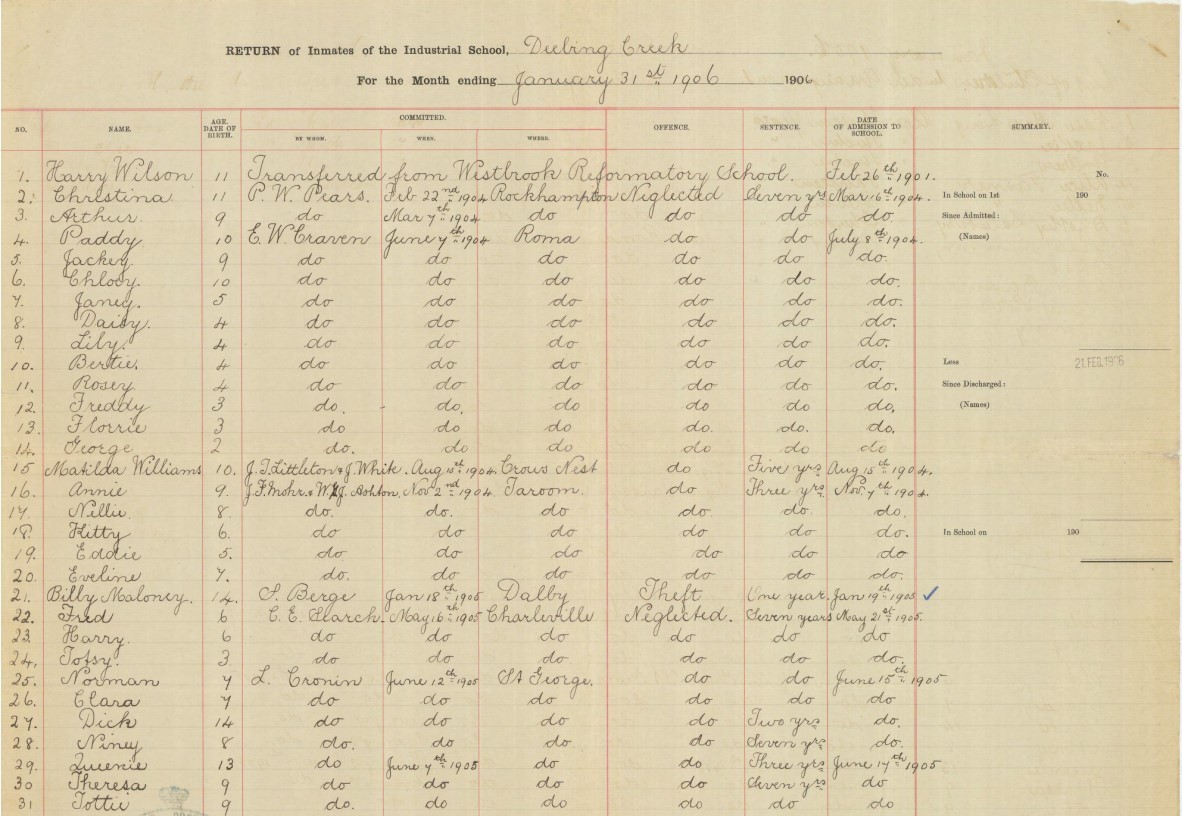 RETURN of Inmates of the Industrial School, Deebing Creek
For the Month ending January 31st 1906 1906
NO. NAME. AGE. DATE OF BIRTH. COMMITTED. BY WHOM. WHEN. WHERE. OFFENCE. SENTENCE. DATE OF ADMISSION TO SCHOOL. SUMMARY.
No.
1. Harry Wilson 11 Transferred from Westbrook Reformatory School. Feb 26th 1901.
2. Christina 11 P. W. Pears. Feb 22nd 1904 Rockhampton Neglected Seven yrs Mar 16th 1904. In School on 1st 190
3. Arthur 9 do Mar 7th 1904 do do do do. Since Admitted:
4. Paddy 10 E. W. Craven June 7th 1904 Roma do do July 8th 1904. (Names)
5. Jackey 9 do do do do do do.
6. Chloey 10 do do do do do do.
7. Janey. 5 do do do do do do.
8. Daisy. 4 do do do do do do.
9. Lily. 4 do do do do do do.
10. Bertie. 4 do do do do do do. Less 21 FEB.1906
11. Rosey 4 do do do do do do. Since Discharged:
12. Freddy 3 do. do. do do do do. (Names)
13. Florrie 3 do do do do. do. do.
14. George 2 do. do do do do do
15 Matilda Williams 10. J. T. Littleton & J. White. Aug 15th 1904 Crows Nest do Five yrs Aug 15th 1904.
16. Annie 9. J. F. Mohr & W. J. Ashton. Nov 2nd 1904 Taroom. do Three yrs Nov. 7th 1904.
17. Nellie 8 do. do. do do do do.
18. Kitty 6. do do do do do do. In School on 190
19. Eddie 5. do do do do do do
20. Eveline 7. do. do do do do do.
21. Billy Maloney. 14. S. Berge Jan 18th 1905 Dalby Theft One year. Jan 19th 1905 ✓
22. Fred 6 C. E. Search. May 16th 1905 Charleville Neglected. Seven years May 21st 1905.
23. Harry. 6 do do do do do do
24. Topsy. 3 do do do. do do do.
25. Norman 7 L. Cronin June 12th 1905 St George. do do June 15th 1905
26. Clara 7 do do do do do do.
27. Dick 14 do do do do Two yrs do.
28. Niney 8 do. do do do Seven yrs do.
29. Queenie 13 do June 7th 1905 do do Three yrs June 17th 1905
30 Theresa 9 do do do do Seven yrs do
31 Tottie 9 do. do do do do do